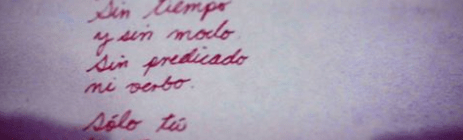 Sin tiempo
y sin modo.
Sin predicado
ni verbo.
Sólo tú